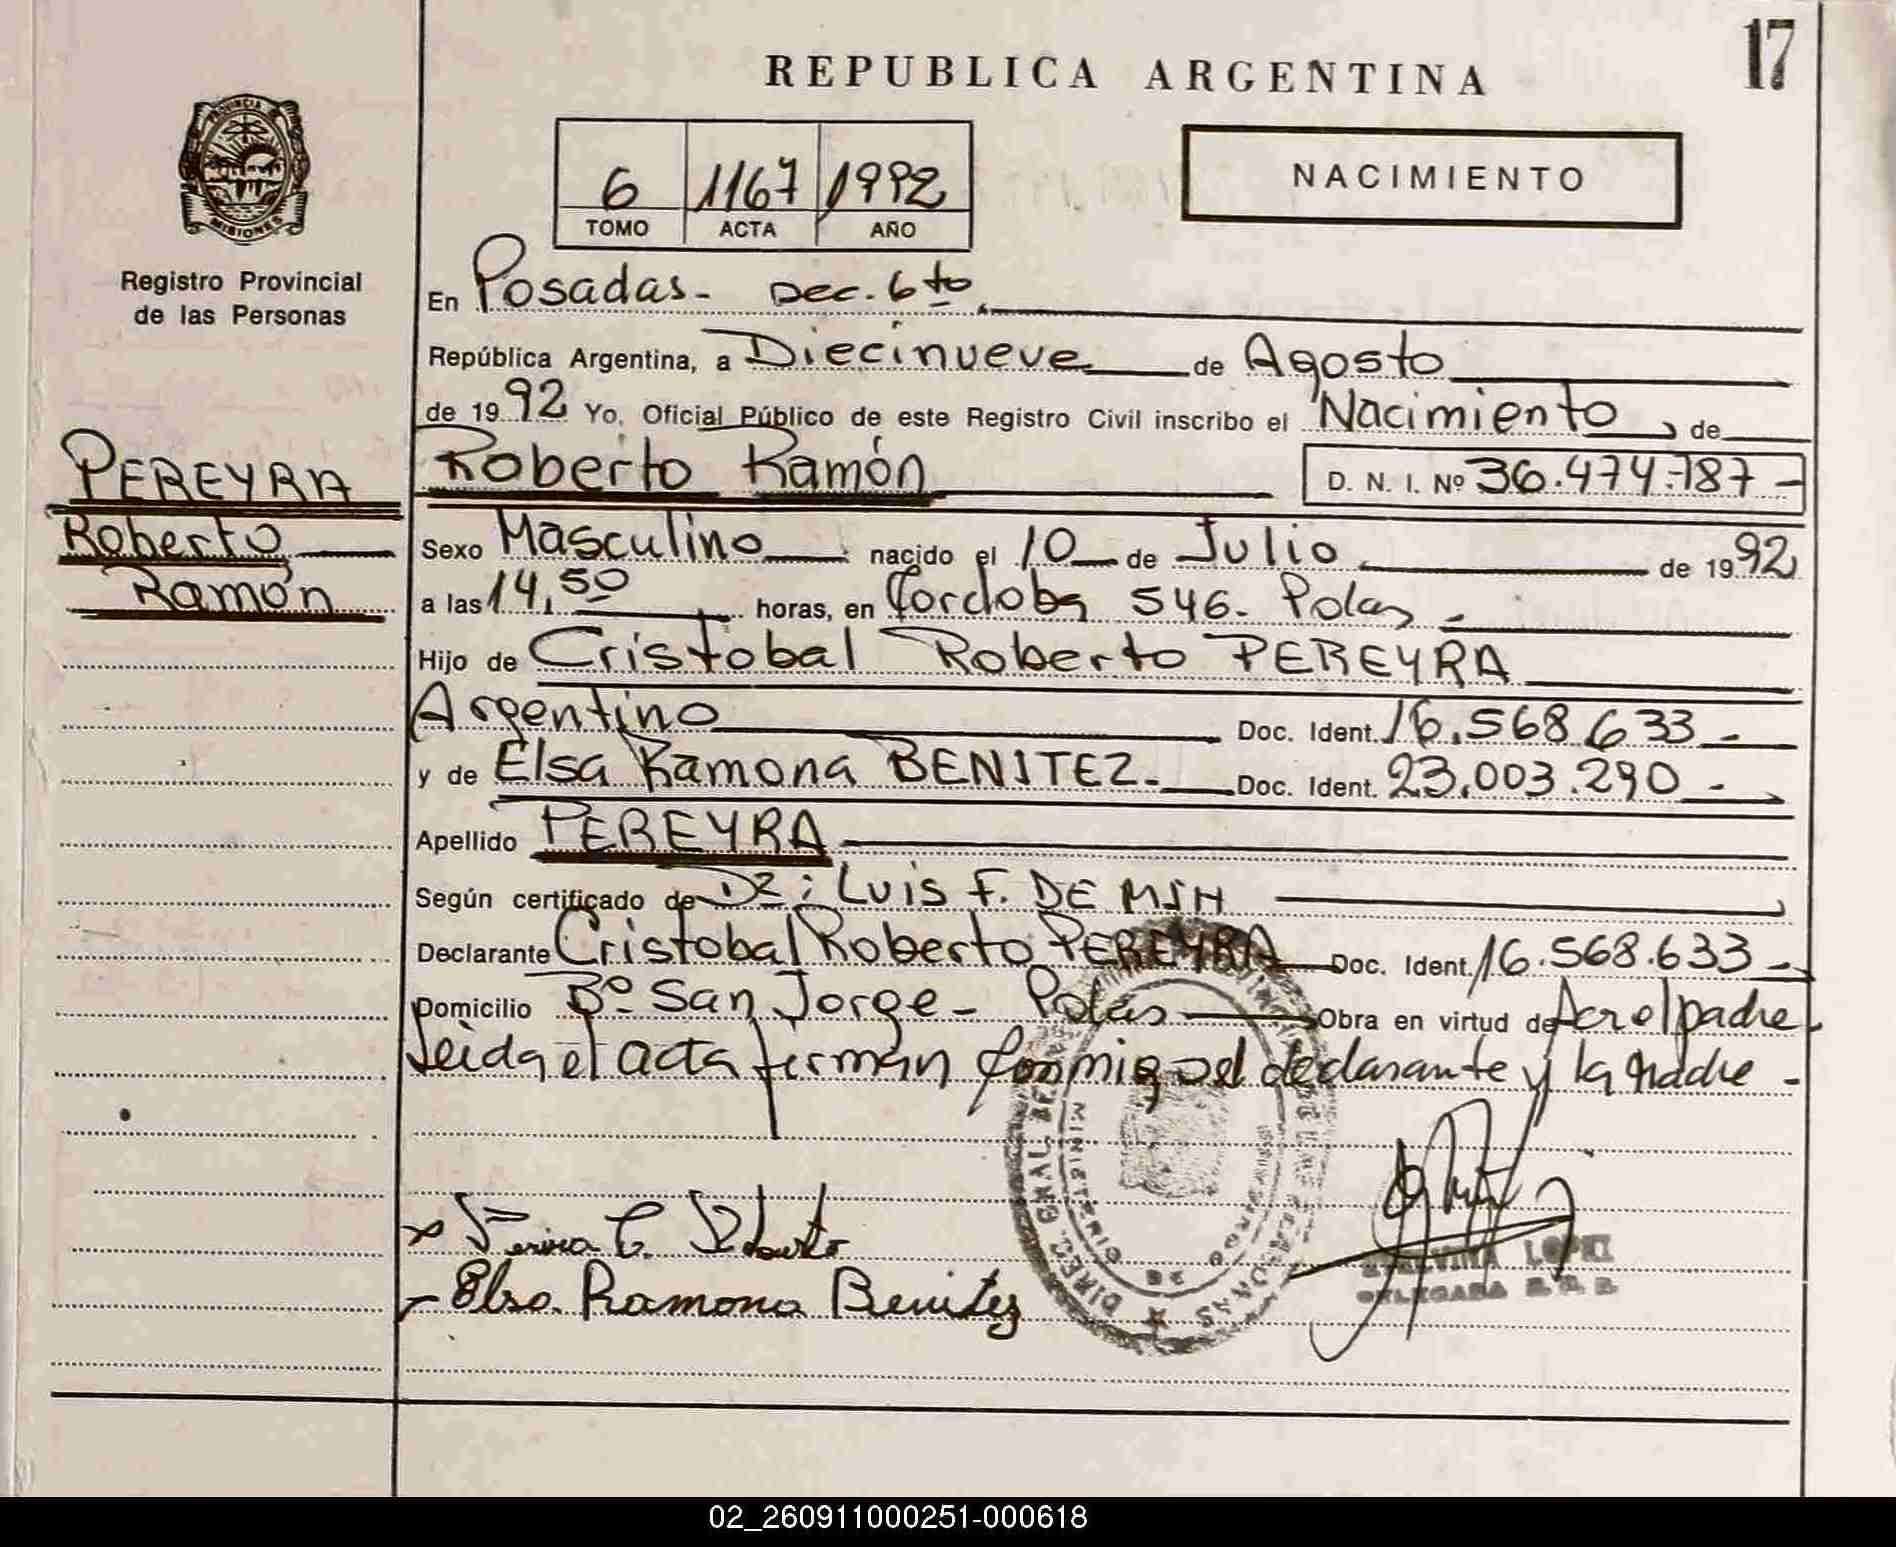 17
REPUBLICA ARGENTINA
PROVINCIA DE
MISIONES
Registro Provincial
de las Personas
6 1167 1992
TOMO ACTA AÑO
NACIMIENTO
En Posadas- Dec. 6to.
República Argentina, a Diecinueve de Agosto
de 1992 Yo, Oficial Público de este Registro Civil inscribo el Nacimiento, de
PEREYRA
Roberto
Ramón
Roberto Ramón D. N. I. Nº 36.474.787-
Sexo Masculino nacido el 10 de Julio de 1992
a las 14,50 horas, en Cordoba 546- Pdas -
Hijo de Cristobal Roberto PEREYRA
Argentino Doc. Ident. 16.568.633-
y de Elsa Ramona BENITEZ- Doc. Ident. 23.003.290-
Apellido PEREYRA
Según certificado de Dr: LUIS F. DE
Declarante Cristobal Roberto PEREYRA Doc. Ident. 16.568.633-
Domicilio Bº San Jorge- Pdas Obra en virtud de padre
leida el acta firman conmigo el declarante y la madre -
Elsa Ramona Benitez
LOPEZ
DELEGADA
02_260911000251-000618